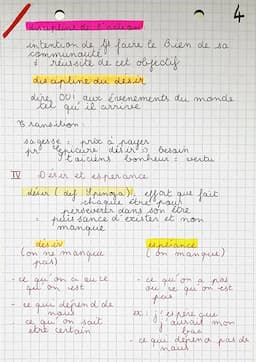 4
discipline de l'action
intention de faire le Bien de sa
communauté
≠ réussite de cet objectif
discipline du désir
dire OUI aux évenements du monde
tel qu'il arrive
Transition:
sagesse = prix à payer
pr Epicure désir = besoin
Stoïciens bonheur = vertu
IV Désir et espérance
désir (def Spinoza): effort que fait
chaque être pour
perseverer dans son être
= puissance d'exister et non
manque
désir
(on ne manque
pas)
- ce qu'on a ou ce
qu'on est
- ce qui dépend de
nous
- ce qu'on sait
être certain
espérance
(on manque)
- ce qu'on a pas
ou ce qu'on est
pas
ex: j'espère que
j'aurait mon
bac
- ce qui dépend pas de
nous